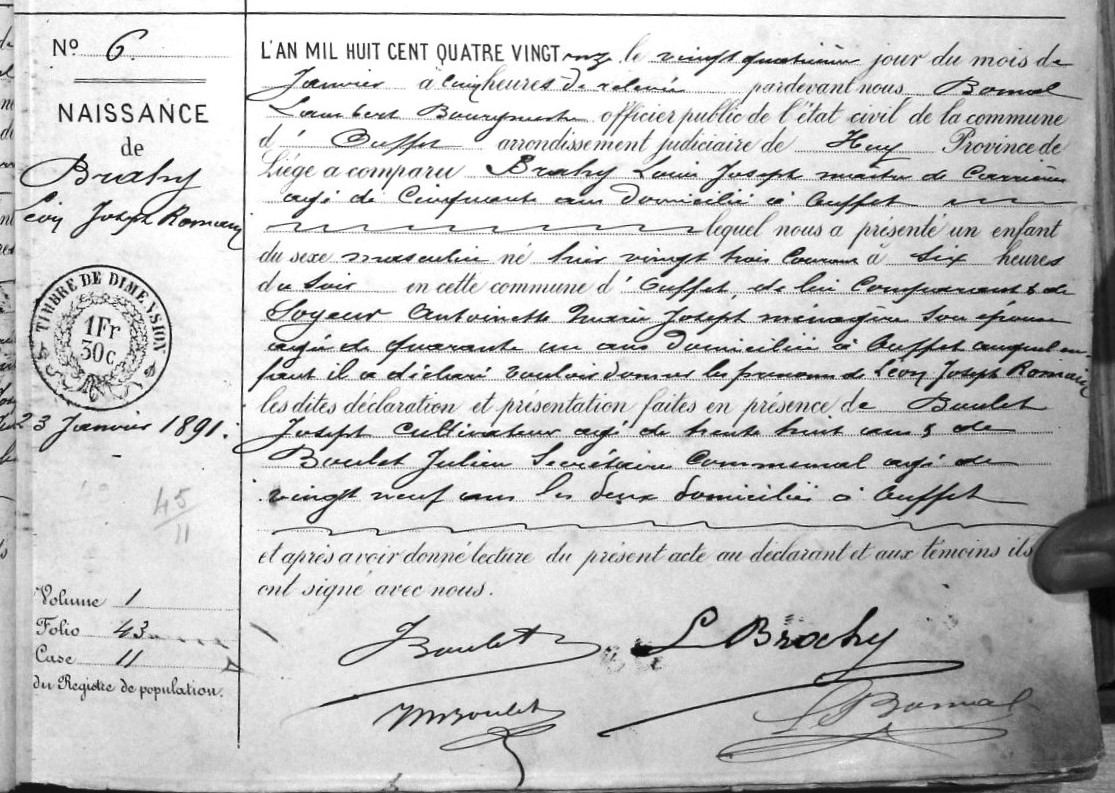 N° 6
NAISSANCE
de
Brahy
Léon Joseph Romain
TIMBRE DE DIMENSION
1 Fr
30 c.
23 Janvier 1891.
45
11
Volume 1
Folio 43
Case 11
du Registre de population.
L'AN MIL HUIT CENT QUATRE VINGT onze le vingt quatrième jour du mois de
Janvier à cinq heures de relevée pardevant nous Bonnal
Lambert Bourgmestre officier public de l'état civil de la commune
d' Ouffet arrondissement judiciaire de Huy Province de
Liége a comparu Brahy Louis Joseph maitre de Carrière
agé de Cinquante ans domicilié à Ouffet
lequel nous a présenté un enfant
du sexe masculin né hier vingt trois Courant à six heures
du soir en cette commune d' Ouffet, de lui Comparant & de
Soyeur Antoinette Marie Joseph menagère son épouse
agée de quarante un ans domiciliée à Ouffet auquel en-
fant il a déclaré vouloir donner les prenoms de Léon Joseph Romain
les dites déclaration et présentation faites en présence de Boulet
Joseph Cultivateur agé de trente huit ans & de
Boulet Julien Secrétaire Communal agé de
vingt neuf ans les deux domiciliés à Ouffet
et après avoir donné lecture du présent acte au déclarant et aux témoins ils
ont signé avec nous.
J Boulet L Brahy
Boulet L Bonnal